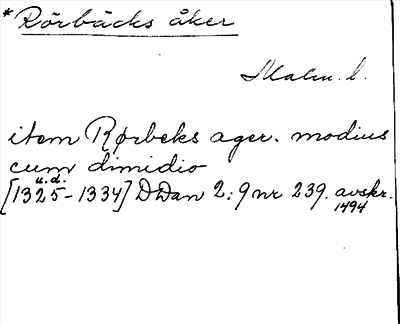 *Rörbäcks åker
Malm. l.
item Rørbeks ager. modius
cum dimidio
u.d.
[1325-1334] DDan 2:9 nr 239. avskr.
1494